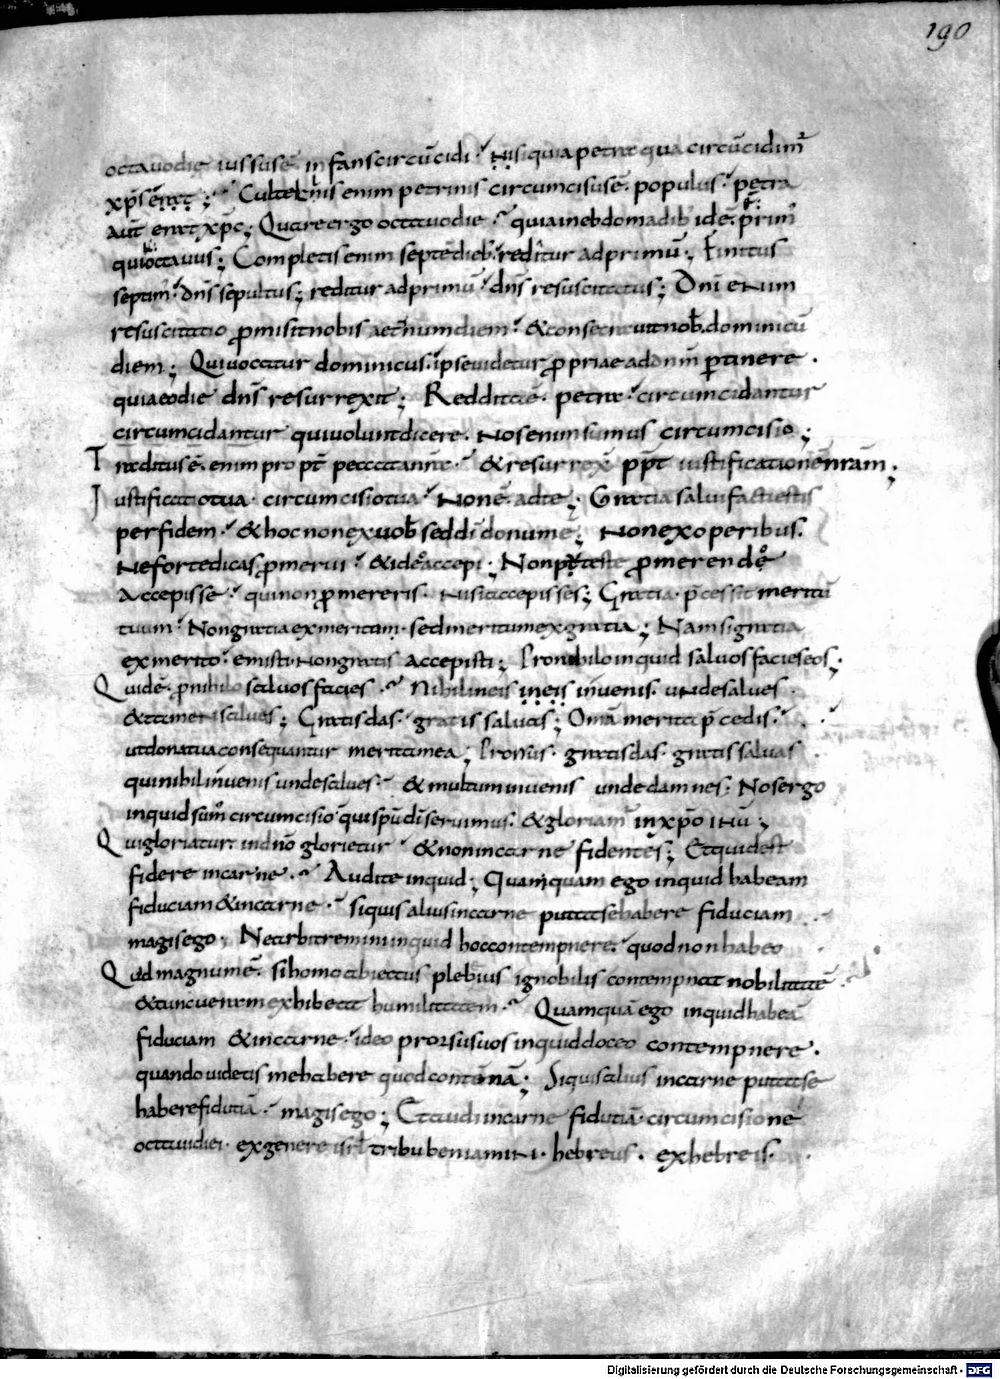 190
octauodie iussusē infans circūcidi · Nisi quia petra qua circūcidimr̄
xp̄s erat ; Cultellis enim petrinis circumcisus ē populus · petra
aut̄ erat xp̄s ; Quare ergo octauodie · quia in ebdomadib; idē prim;
qui octauus ; Completis enim septē dieb; reditur ad primū ; Finitus
septim; dn̄s sepultus ; reditur ad primū · dn̄s resuscitatus ; Dn̄i enim
resuscitatio promisit nobis aet̄num diem · & consecrauit nob̄ dominicū
diem ; Qui uocatur dominicus · ipse uidetur propriae ad dnm̄ ꝑtinere ·
quia eo die dn̄s resurrexit ; Reddita ē petra · circumcidantur
circumcidantur qui uolunt dicere · Nos enim sumus circumcisio ;
Traditus ē enim propt̄ peccata nr̄a · & resurrex̄ ppt̄ iustificationē nr̄am ;
Iustificatio tua · circumcisio tua · Non ē a dte ; Gratia salui facti estis
per fidem · & hoc non ex uob̄ sed dī donum ē ; Non ex operibus ·
Ne forte dicas promerui · & ideo accepi ; Non pote te promerendo
Accepisse · qui non promereris · nisi accepisses ; Gratia p̄cessit meritū
tuum · Non gratia ex meritam · sed meritum ex gratia ; Nam si gratia
ex merito · emisti non gratis accepisti ; Pro nihilo inquid saluos facies eos ;
Quid ē pro nihilo saluos facies · Nihil in eis in eis inuenis · unde salues
& tamen salues ; Gratis das · gratis saluas ; Omā merita p̄cedis ·
ut dona tua consequantur merita mea ; Prorsus · gratis das gratis saluas
qui nihil inuenis unde salues · & multum inuenis unde damnes ; Nos ergo
inquid sum; circumcisio qui spū dī seruimus · & gloriam̄ in xp̄o ihū ;
Qui gloriatur in dn̄o glorietur & non in carne fidentes ; Et quid est
fidere in carne · Audite inquid ; Quamquam ego inquid habeam
fiduciam & in carne · si quis alius in carne putat se habere fiduciam
magis ego ; Ne arbitremini inquid hoc contempnere · quod non habeo
Quid magnum ē · si homo abiectus plebeius ignobilis contempnat nobilitatē
& tunc ueram exhibeat humilitatem · Quamquā ego inquid habeā
fiduciam & in carne · ideo prorsus uos inquid doceo contempnere ·
quando uidetis me habere quod contēnā ; Si quis alius in carne putat se
habere fidutiā · magis ego ; Et audi in carne fidutiā · circumcisione
octaui diei · ex genere isrl̄ tribu beniamin · hebreus · ex hebreis ·
Digitalisierung gefördert durch die Deutsche Forschungsgemeinschaft - DFG